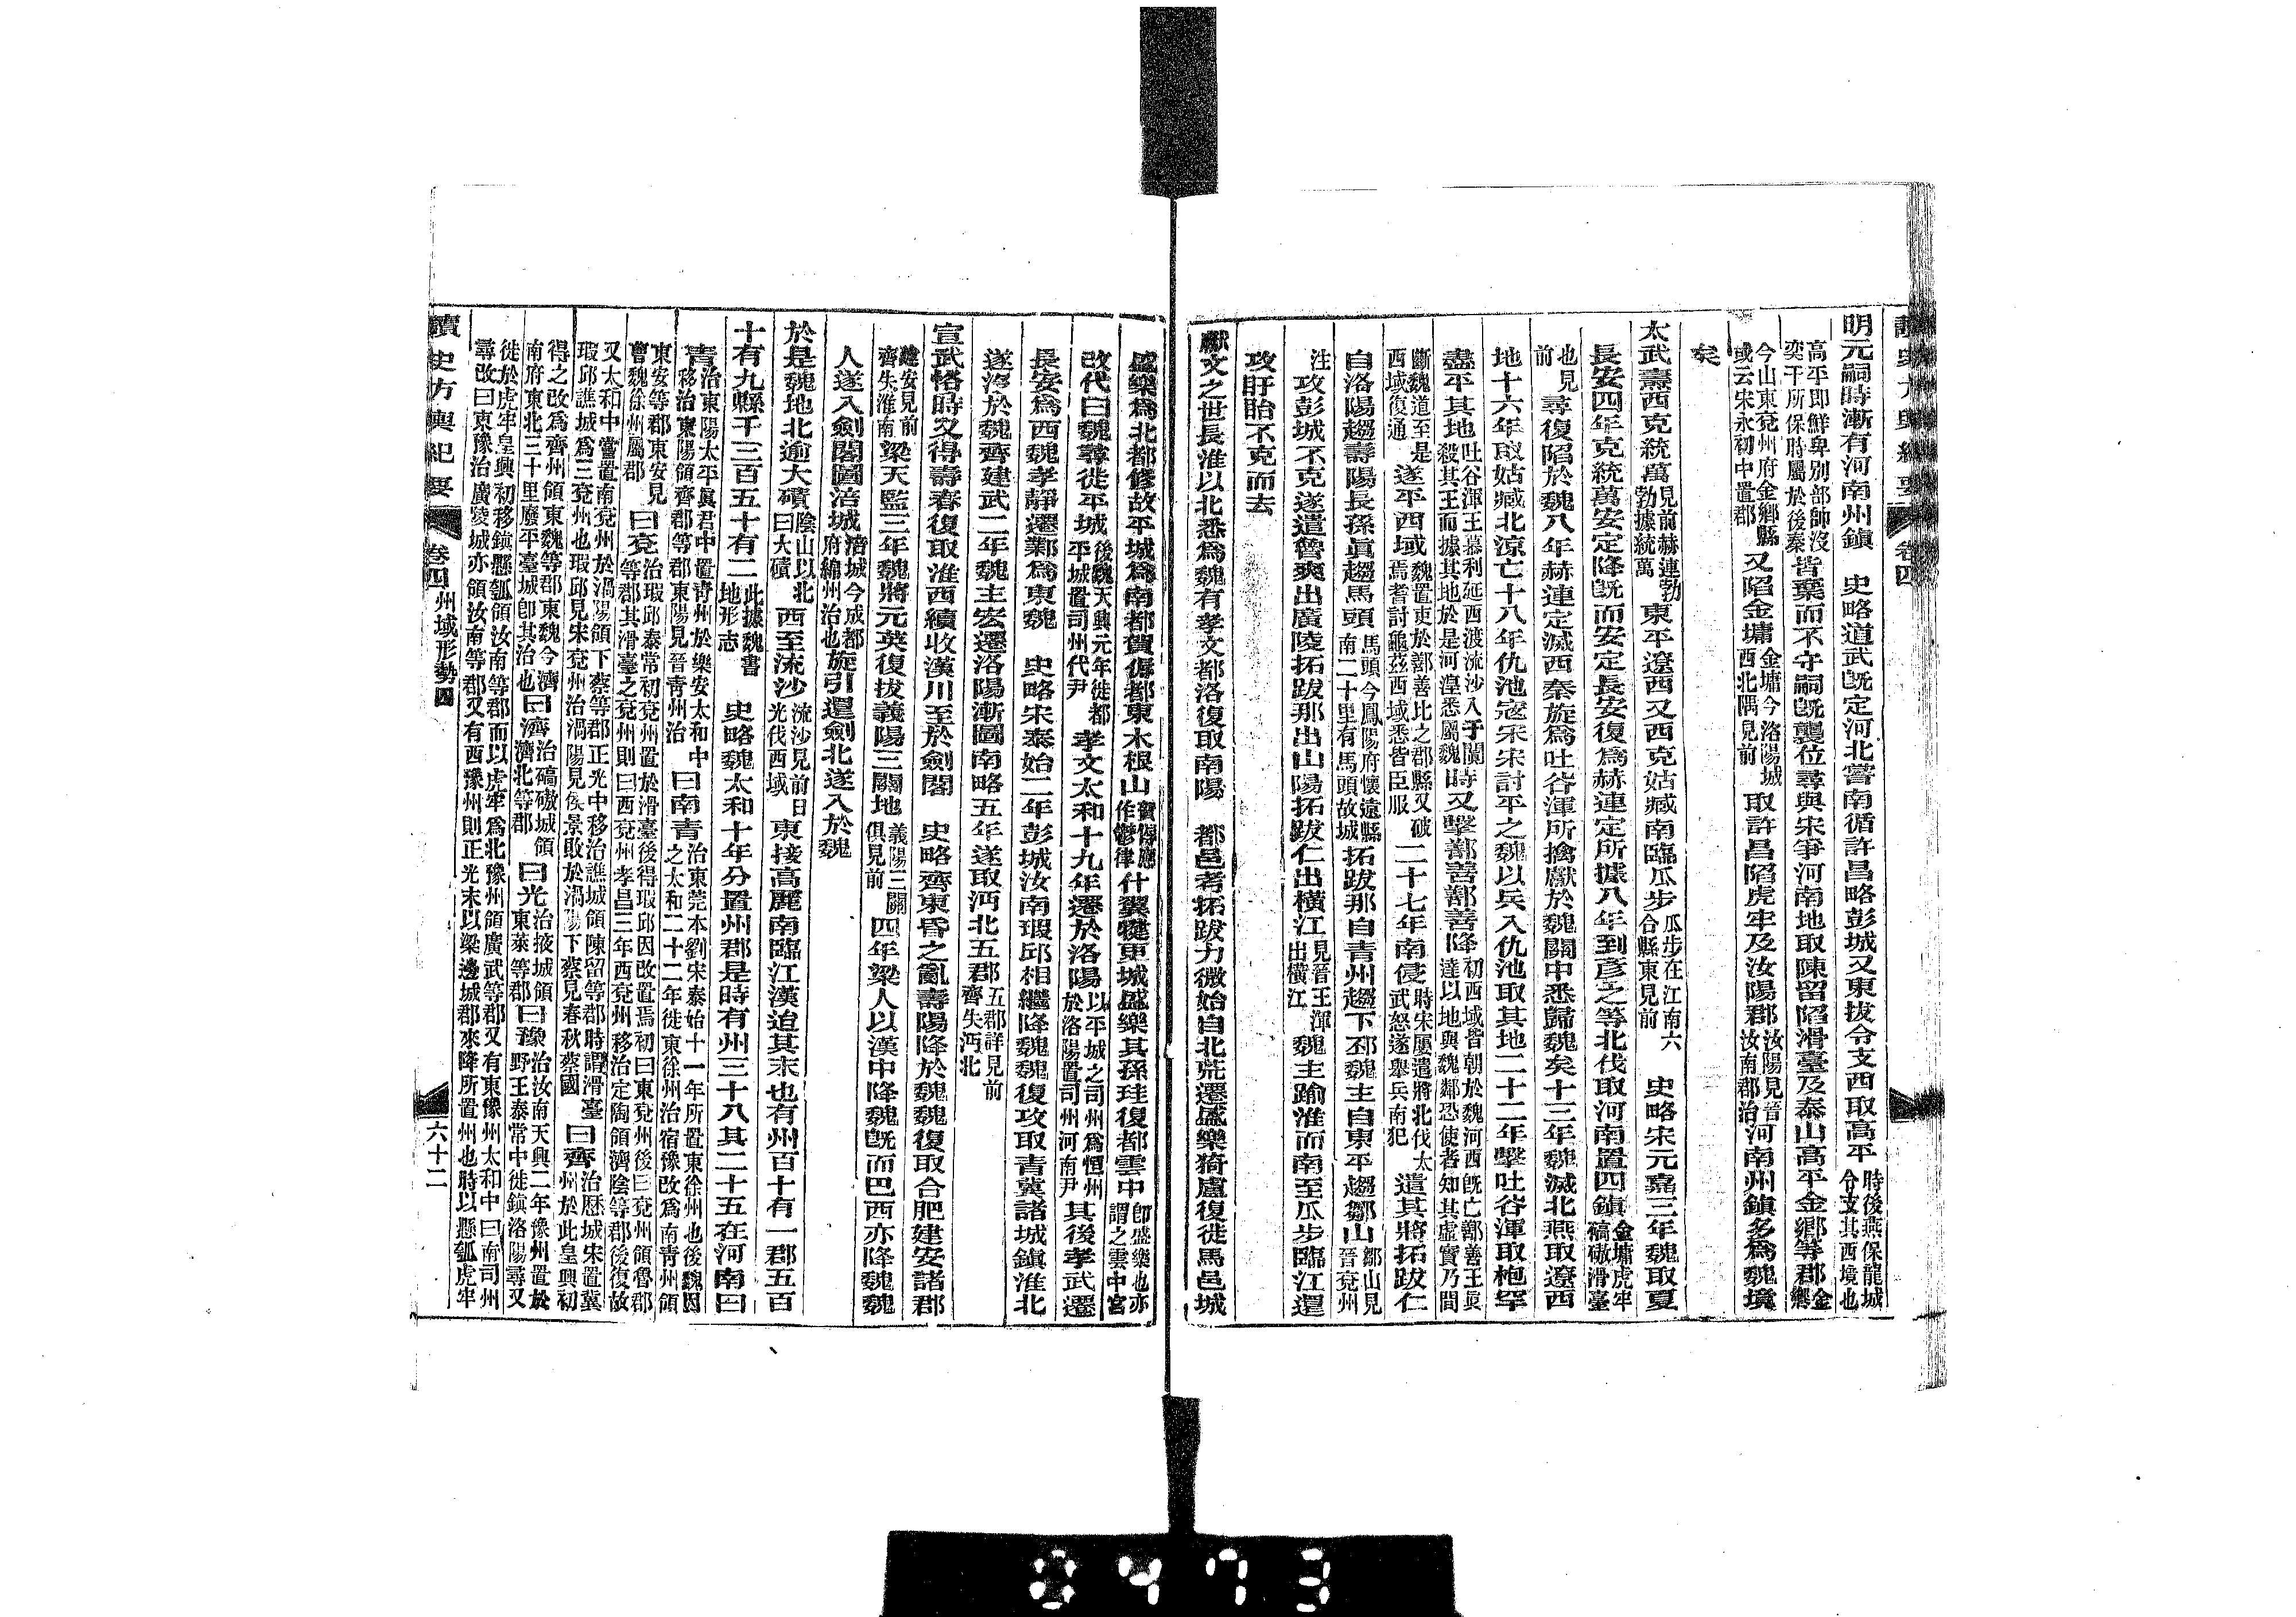 讀史方輿紀要 卷四
明元嗣時漸有河南州鎮 史略道武既定河北嘗南循許昌略彭城又東拔令支西取高平時後燕保龍城令支其西境也
高平即鮮卑別部帥沒奕干所保時屬於後秦皆棄而不守嗣既襲位尋與宋爭河南地取陳留陷滑臺及泰山高平金鄉等郡金鄉
今山東兗州府金鄉縣或云宋永初中置郡又陷金墉金墉今洛陽城西北隅見前取許昌陷虎牢及汝陽郡汝陽見晉汝南郡治河南州鎮多為魏境
矣
太武燾西克統萬見前赫連勃勃據統萬東平遼西又西克姑臧南臨瓜步瓜步在江南六合縣東見前 史略宋元嘉三年魏取夏
長安四年克統萬安定降既而安定長安復為赫連定所據八年到彥之等北伐取河南置四鎮金墉虎牢碻磝滑臺
也見前尋復陷於魏八年赫連定滅西秦旋為吐谷渾所擒獻於魏關中悉歸魏矣十三年魏滅北燕取遼西
地十六年取姑臧北涼亡十八年仇池寇宋宋討平之魏以兵入仇池取其地二十二年擊吐谷渾取枹罕
盡平其地吐谷渾王慕利延西渡流沙入于闐殺其王而據其地於是河湟悉屬魏時又擊鄯善鄯善降初西域皆朝於魏河西既亡鄯善王真達以地與魏鄰恐使者知其虛實乃閒
斷魏道至是西域復通遂平西域魏置吏於鄯善比之郡縣又破焉耆討龜茲西域悉皆臣服二十七年南侵時宋屢遣將北伐太武怒遂舉兵南犯遣其將拓跋仁
自洛陽趨壽陽長孫真趨馬頭馬頭今鳳陽府懷遠縣南二十里有馬頭故城拓跋那自青州趨下邳魏主自東平趨鄒山鄒山見晉兗州
注攻彭城不克遂遣魯爽出廣陵拓跋那出山陽拓跋仁出橫江見晉王渾出橫江魏主踰淮而南至瓜步臨江還
攻盱眙不克而去
獻文之世長淮以北悉為魏有孝文都洛復取南陽 都邑考拓跋力微始自北荒遷盛樂猗盧復徙馬邑城
盛樂為北都修故平城為南都賀傉都東木根山賀傉應作鬱律什翼犍更城盛樂其孫珪復都雲中即盛樂也亦謂之雲中宮
改代曰魏尋徙平城後魏天興元年徙都平城置司州代尹孝文太和十九年遷於洛陽以平城之司州為恒州於洛陽置司州河南尹其後孝武遷
長安為西魏孝靜遷鄴為東魏 史略宋泰始二年彭城汝南瑕邱相繼降魏魏復攻取青冀諸城鎮淮北
遂沒於魏齊建武二年魏主宏遷洛陽漸圖南略五年遂取沔北五郡五郡詳見前齊失沔北
宣武恪時又得壽春復取淮西續收漢川至於劍閣 史略齊東昏之亂壽陽降於魏魏復取合肥建安諸郡
建安見前齊失淮南梁天監三年魏將元英復拔義陽三關地義陽三關俱見前四年梁人以漢中降魏既而巴西亦降魏魏
人遂入劍閣圖涪城涪城今成都府綿州治也旋引還劍北遂入於魏
於是魏地北逾大磧陰山以北曰大磧西至流沙流沙見前日光伐西域東接高麗南臨江漢迨其末也有州百十有一郡五百
十有九縣千三百五十有二此據魏書地形志 史略魏太和十年分置州郡是時有州三十八其二十五在河南曰
青治東陽太平真君中置青州於樂安太和中移治東陽領齊郡等郡東陽見晉青州治曰南青治東莞本劉宋泰始十一年所置東徐州也後魏因之太和二十二年徙東徐州治宿豫改為南青州領
東安等郡東安見曹魏徐州屬郡曰兗治瑕邱泰常初兗州置於滑臺後得瑕邱因改置焉初曰東兗州後曰兗州領魯郡等郡其滑臺之兗州則曰西兗州孝昌三年西兗州移治定陶領濟陰等郡後復故
又太和中嘗置南兗州於渦陽領下蔡等郡正光中移治譙城領陳留等郡時謂滑臺瑕邱譙城為三兗州也瑕邱見宋兗州治渦陽見侯景敗於渦陽下蔡見春秋蔡國曰齊治歷城宋置冀州於此皇興初
得之改為齊州領東魏等郡東魏今濟南府東北三十里廢平臺城即其治也曰濟治碻磝城領濟北等郡曰光治掖城領東萊等郡曰豫治汝南天興二年豫州置於野王泰常中徙鎮洛陽尋又
徙於虎牢皇興初移鎮懸瓠領汝南等郡而以虎牢為北豫州領廣武等郡又有東豫州太和中曰南司州尋改曰東豫治廣陵城亦領汝南等郡又有西豫州則正光末以梁邊城郡來降所置州也時以懸瓠虎牢
讀史方輿紀要 卷四 州域形勢四 六十二
0473